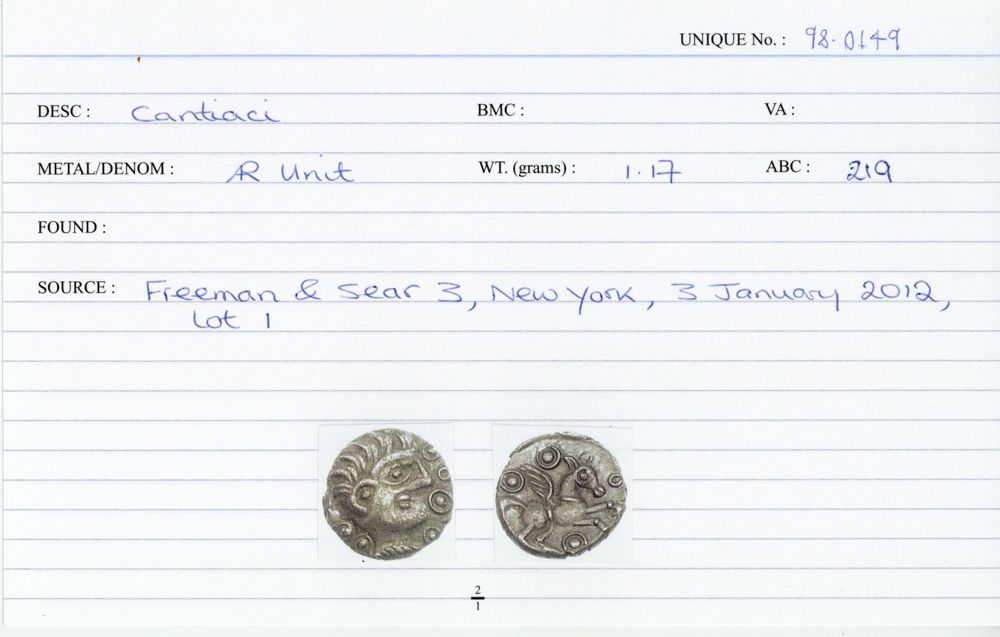 UNIQUE No. : 98.0149
DESC : Cantiaci BMC : VA :
METAL/DENOM : AR Unit WT. (grams) : 1.17 ABC : 219
FOUND :
SOURCE : Freeman & Sear 3, New York, 3 January 2012,
Lot 1
2
1